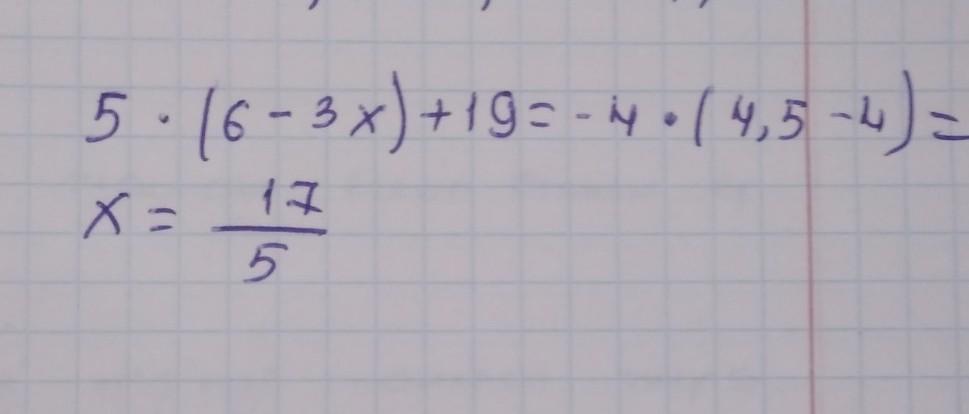 5 · (6 - 3x) + 19 = -4 · (4,5 - 4) =
x = 17/5